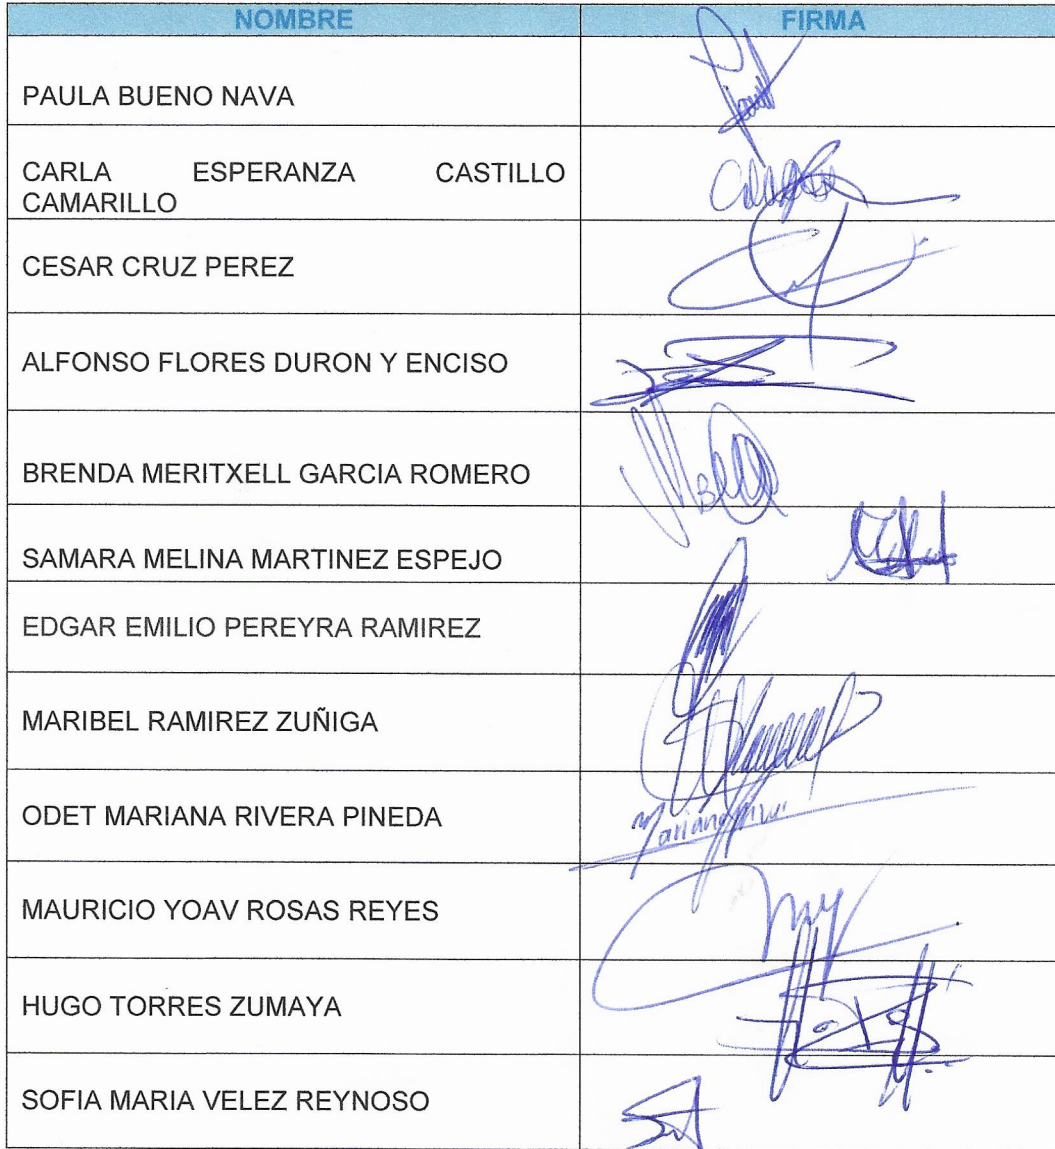 NOMBRE FIRMA
PAULA BUENO NAVA
CARLA ESPERANZA CASTILLO
CAMARILLO
CESAR CRUZ PEREZ
ALFONSO FLORES DURON Y ENCISO
BRENDA MERITXELL GARCIA ROMERO
SAMARA MELINA MARTINEZ ESPEJO
EDGAR EMILIO PEREYRA RAMIREZ
MARIBEL RAMIREZ ZUÑIGA
ODET MARIANA RIVERA PINEDA
MAURICIO YOAV ROSAS REYES
HUGO TORRES ZUMAYA
SOFIA MARIA VELEZ REYNOSO